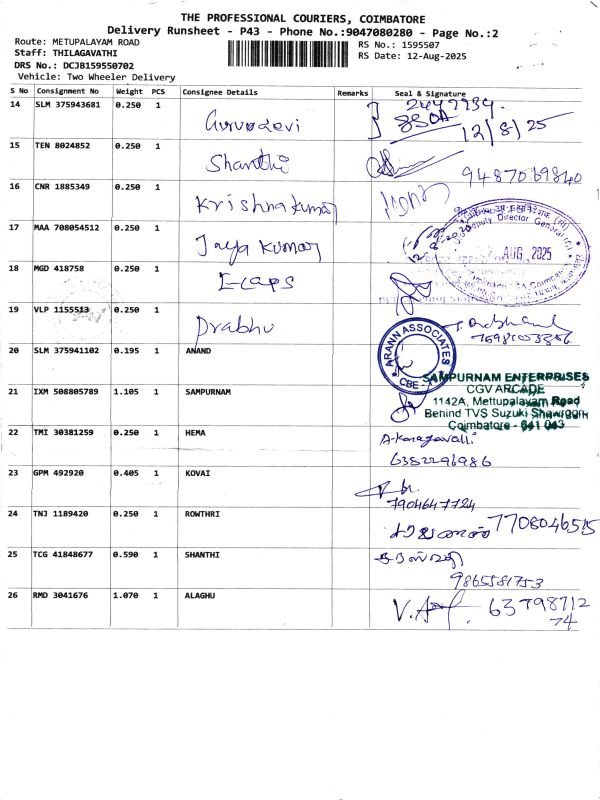 THE PROFESSIONAL COURIERS, COIMBATORE
Delivery Runsheet - P43 - Phone No.:9047080280 - Page No.:2
Route: METUPALAYAM ROAD RS No.: 1595507
Staff: THILAGAVATHI RS Date: 12-Aug-2025
DRS No.: DCJB159550702
Vehicle: Two Wheeler Delivery
S No Consignment No Weight PCS Consignee Details Remarks Seal & Signature
14 SLM 375943681 0.250 1 Gurudevi
12/8/25
15 TEN 8024852 0.250 1 Shanthi 9487069840
16 CNR 1885349 0.250 1 Krishna kumar
17 MAA 708054512 0.250 1 Jaya Kumar
Deputy Director General
AUG 2025
18 MGD 418758 0.250 1 E-caps
19 VLP 1155513 0.250 1 Prabhu
20 SLM 375941102 0.195 1 ANAND
ARANN ASSOCIATES
CBE
21 IXM 508805789 1.105 1 SAMPURNAM
SAMPURNAM ENTERPRISES
CGV ARCADE
1142A, Mettupalayam Road
Benind TVS Suzuki Showroom
Coimbatore - 641 043
22 TMI 30381259 0.250 1 HEMA
6382296986
23 GPM 492920 0.405 1 KOVAI
7904647724
24 TNJ 1189420 0.250 1 ROWTHRI 7708046515
25 TCG 41848677 0.590 1 SHANTHI
9865581753
26 RMD 3041676 1.070 1 ALAGHU 63798712
74